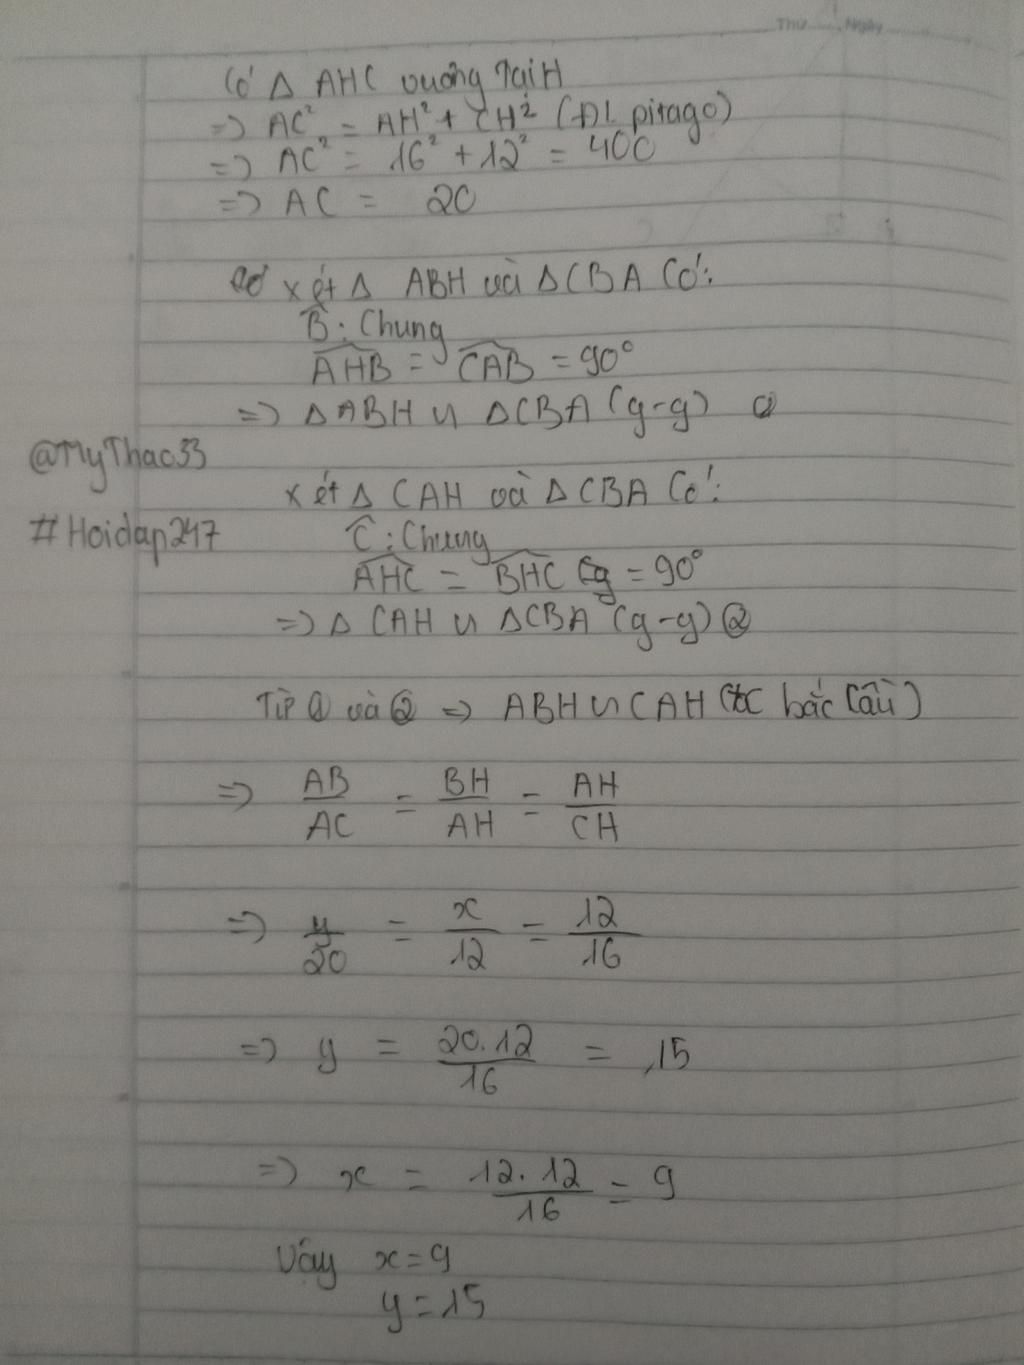 Thứ Ngày
Có Δ AHC vuông tại H
=> AC² = AH² + CH² (ĐL pitago)
=> AC² = 16² + 12² = 400
=> AC = 20
xét Δ ABH và Δ CBA có:
B̂: Chung
AHB = CAB = 90°
=> Δ ABH ∽ Δ CBA (g-g) ①
@MyThao33
xét Δ CAH và Δ CBA có:
#Hoidap247
Ĉ: Chung
AHC = BHC = 90°
=> Δ CAH ∽ Δ CBA (g-g) ②
Từ ① và ② => ABH ∽ CAH (tc bắc cầu)
=> AB/AC = BH/AH = AH/CH
=> y/20 = x/12 = 12/16
=> y = 20.12/16 = 15
=> x = 12.12/16 = 9
Vậy x=9
y=15